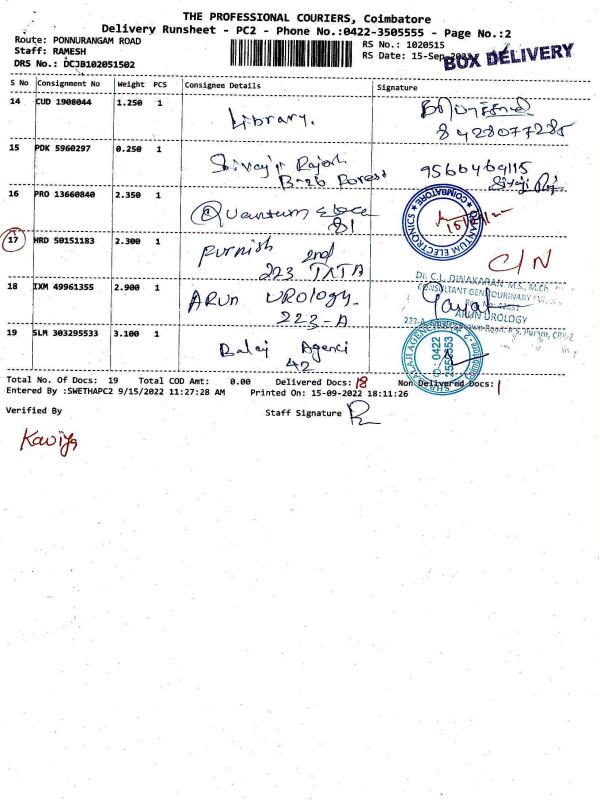 THE PROFESSIONAL COURIERS, Coimbatore
Delivery Runsheet - PC2 - Phone No.:0422-3505555 - Page No.:2
Route: PONNURANGAM ROAD
Staff: RAMESH
DRS No.: DCJB102051502
RS No.: 1020515
RS Date: 15-Sep-2022
BOX DELIVERY
S No Consignment No Weight PCS Consignee Details Signature
14 CUD 1908044 1.250 1 Library.
8428077285
15 PDK 5960297 0.250 1 Sivaji Rajesh 9566469115
B-26 Forest
16 PRO 13660840 2.350 1 Quantum
81
QUANTUM ELECTRONICS * COIMBATORE *
17 HRD 50151183 2.300 1 Furnish C/N
223 TATA
18 IXM 49961355 2.900 1 ARUN UROLOGY
223-A
Dr. C.L. DINAKARAN M.S., M.Ch
CONSULTANT GENITOURINARY
ARUN UROLOGY
19 SLM 303295533 3.100 1 Balaji Agenci
42
0422
2550553
Total No. Of Docs: 19 Total COD Amt: 0.00 Delivered Docs: 18 Non Delivered Docs: 1
Entered By :SWETHAPC2 9/15/2022 11:27:28 AM Printed On: 15-09-2022 18:11:26
Verified By Staff Signature
Kaviya